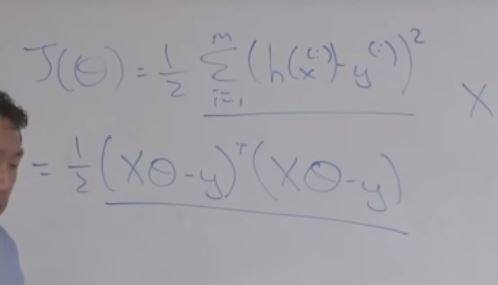 J(θ) = 1/2 Σ_{i=1}^{m} (h(x^{(i)}) - y^{(i)})^2 X
= 1/2 (Xθ - y)^T (Xθ - y)